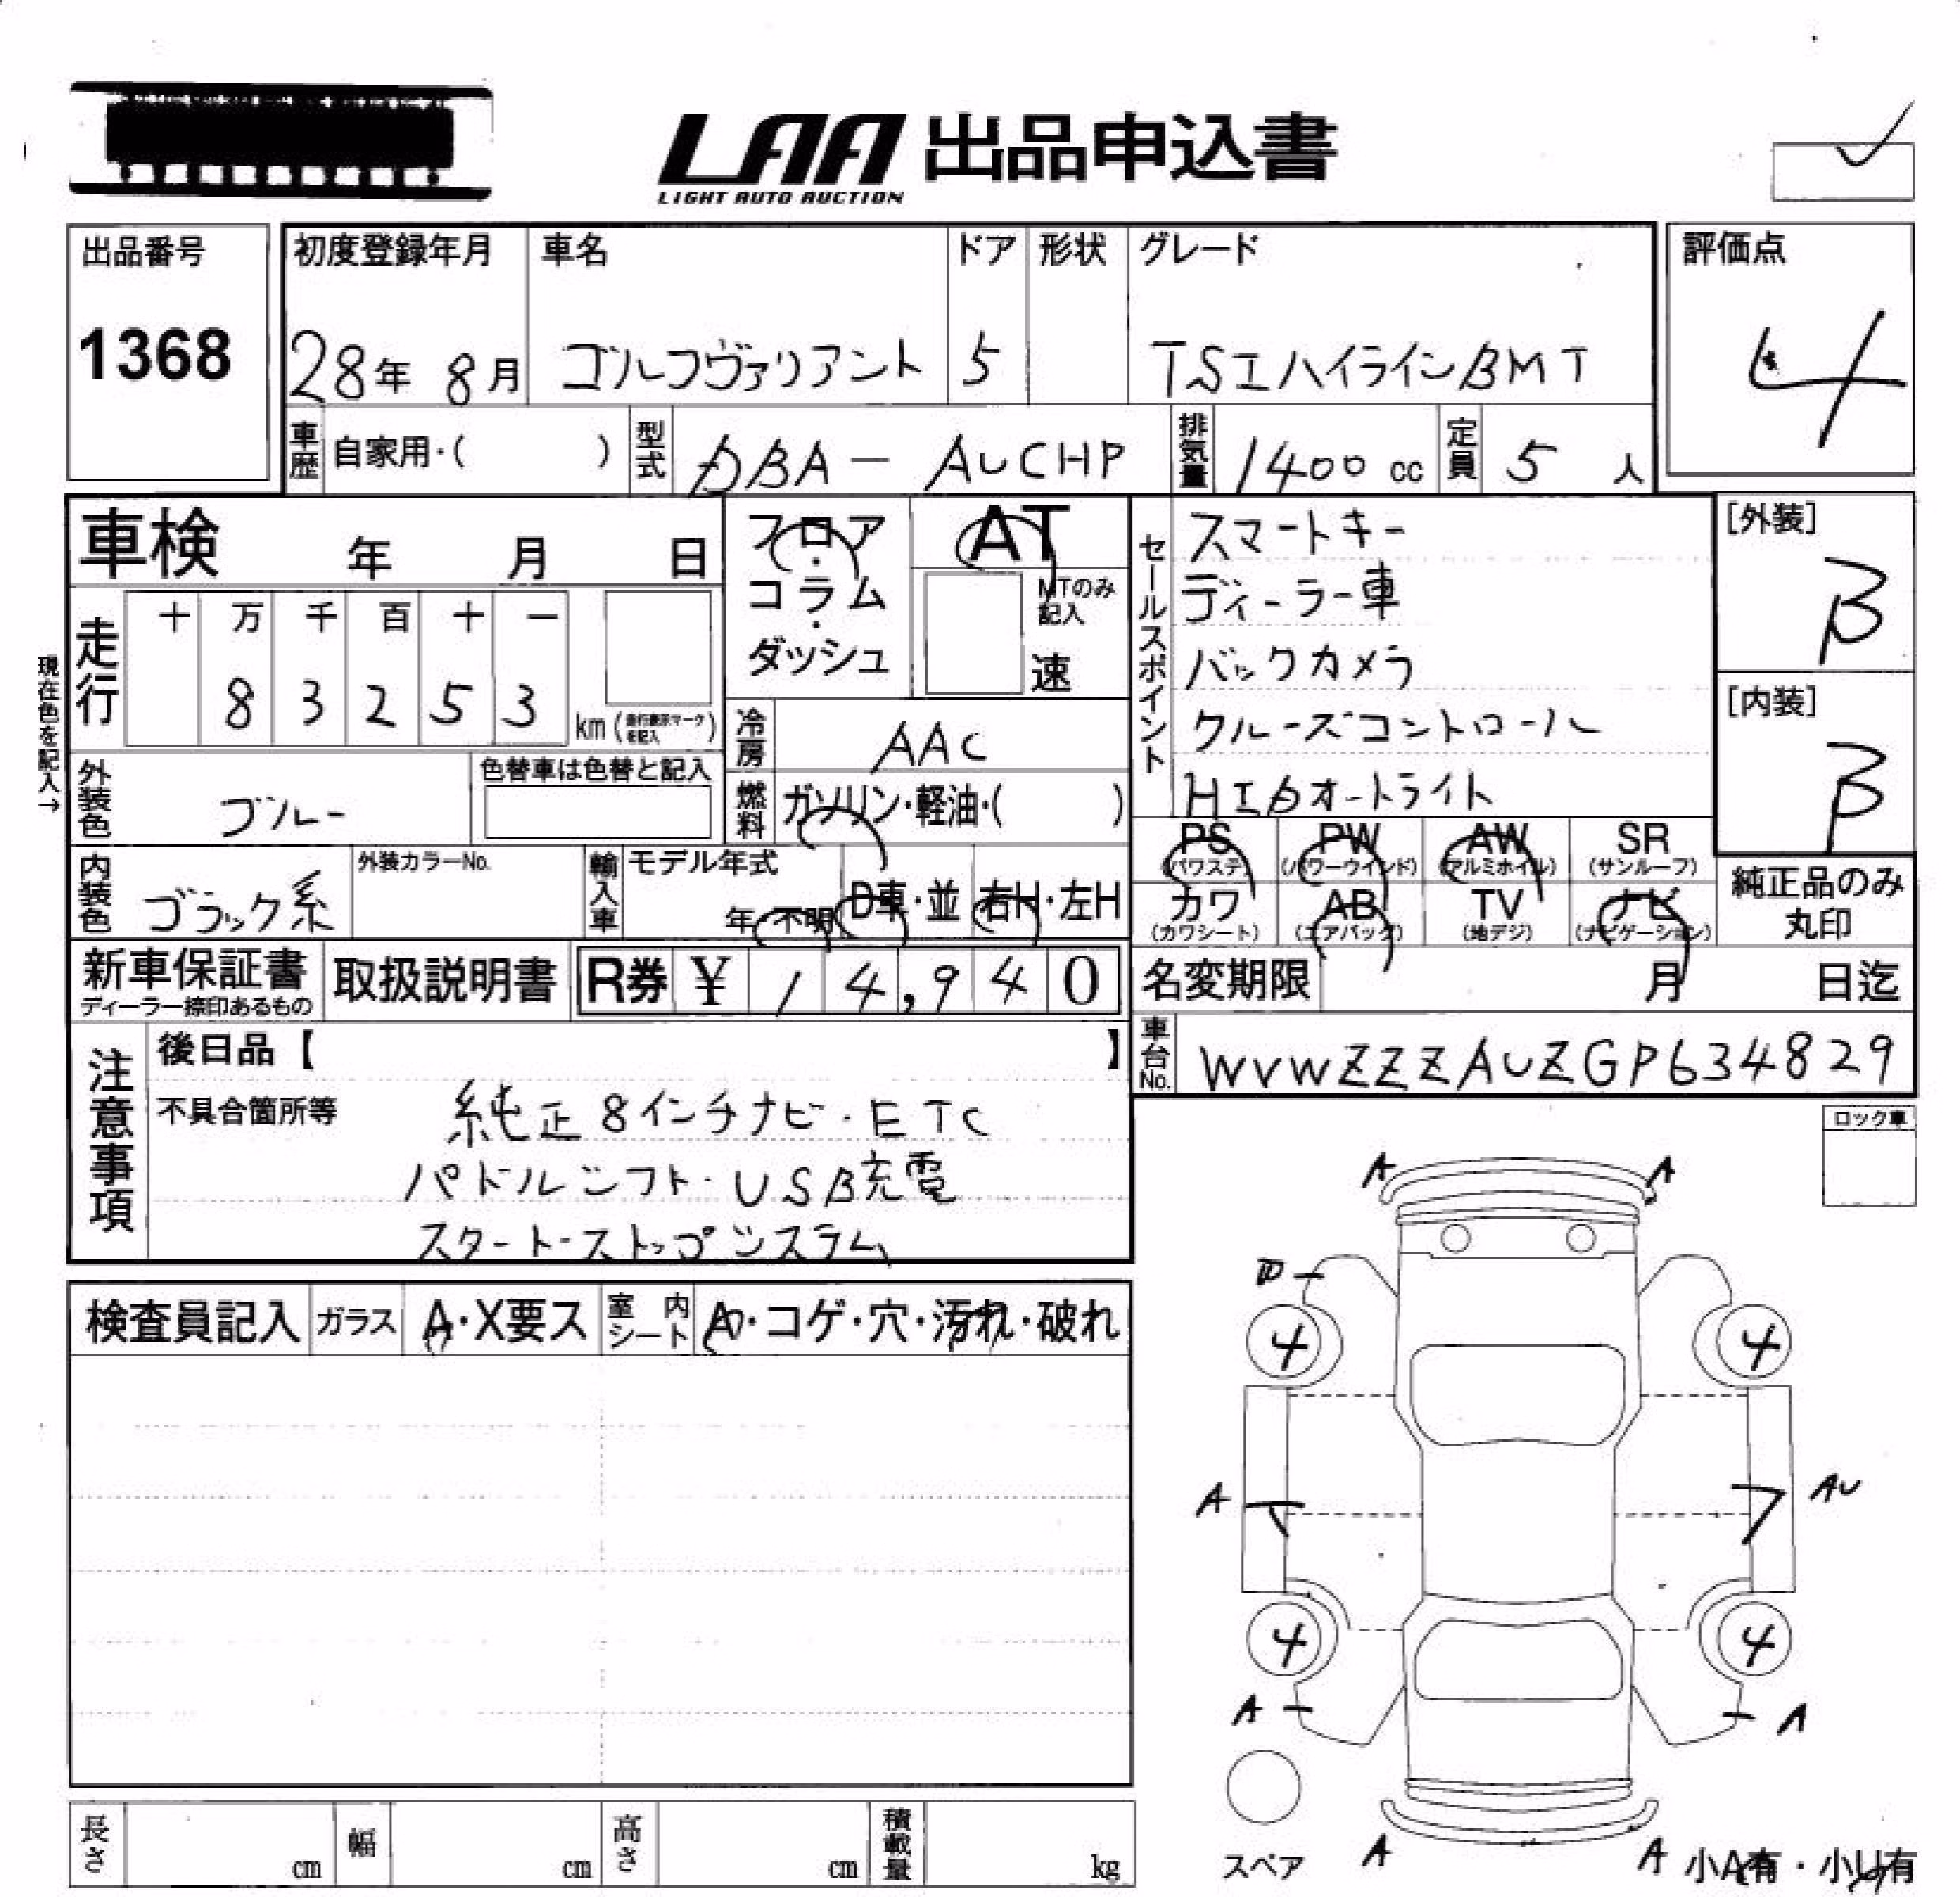 LAA 出品申込書
LIGHT AUTO AUCTION
出品番号
1368
初度登録年月
28年 8月
車名
ゴルフヴァリアント
ドア
5
形状
グレード
TSIハイラインBMT
評価点
4
車歴 自家用・( )
型式 DBA-AUCHP
排気量 1400 cc
定員 5 人
車検 年 月 日
現在色を記入→
走行
十 万 千 百 十 一
8 3 2 5 3
km (走行表示マークを記入)
フロア・
コラム・
ダッシュ
AT
MTのみ記入
速
冷房 AAC
燃料 ガソリン・軽油・( )
外装色 ブルー
色替車は色替と記入
内装色 ブラック系
外装カラーNo.
輸入車 モデル年式
年・不明
D車・並
右H・左H
セールスポイント
スマートキー
ディーラー車
バックカメラ
クルーズコントロール
HIDオートライト
[外装]
B
[内装]
B
PS (パワステ)
PW (パワーウインド)
AW (アルミホイル)
SR (サンルーフ)
カワ (カワシート)
AB (エアバッグ)
TV (地デジ)
ナビ (ナビゲーション)
純正品のみ
丸印
新車保証書
ディーラー捺印あるもの
取扱説明書
R券 ¥ 14,940
名変期限 月 日迄
車台No. WVWZZZAUZGP634829
注意事項
後日品【 】
不具合箇所等
純正8インチナビ・ETC
パドルシフト・USB充電
スタート・ストップシステム
ロック車
検査員記入
ガラス A・X要ス
室内シート A・コゲ・穴・汚れ・破れ
A A
4 4
A AU
4 4
A A
スペア
A A
小A有・小U有
長さ cm
幅 cm
高さ cm
積載量 kg